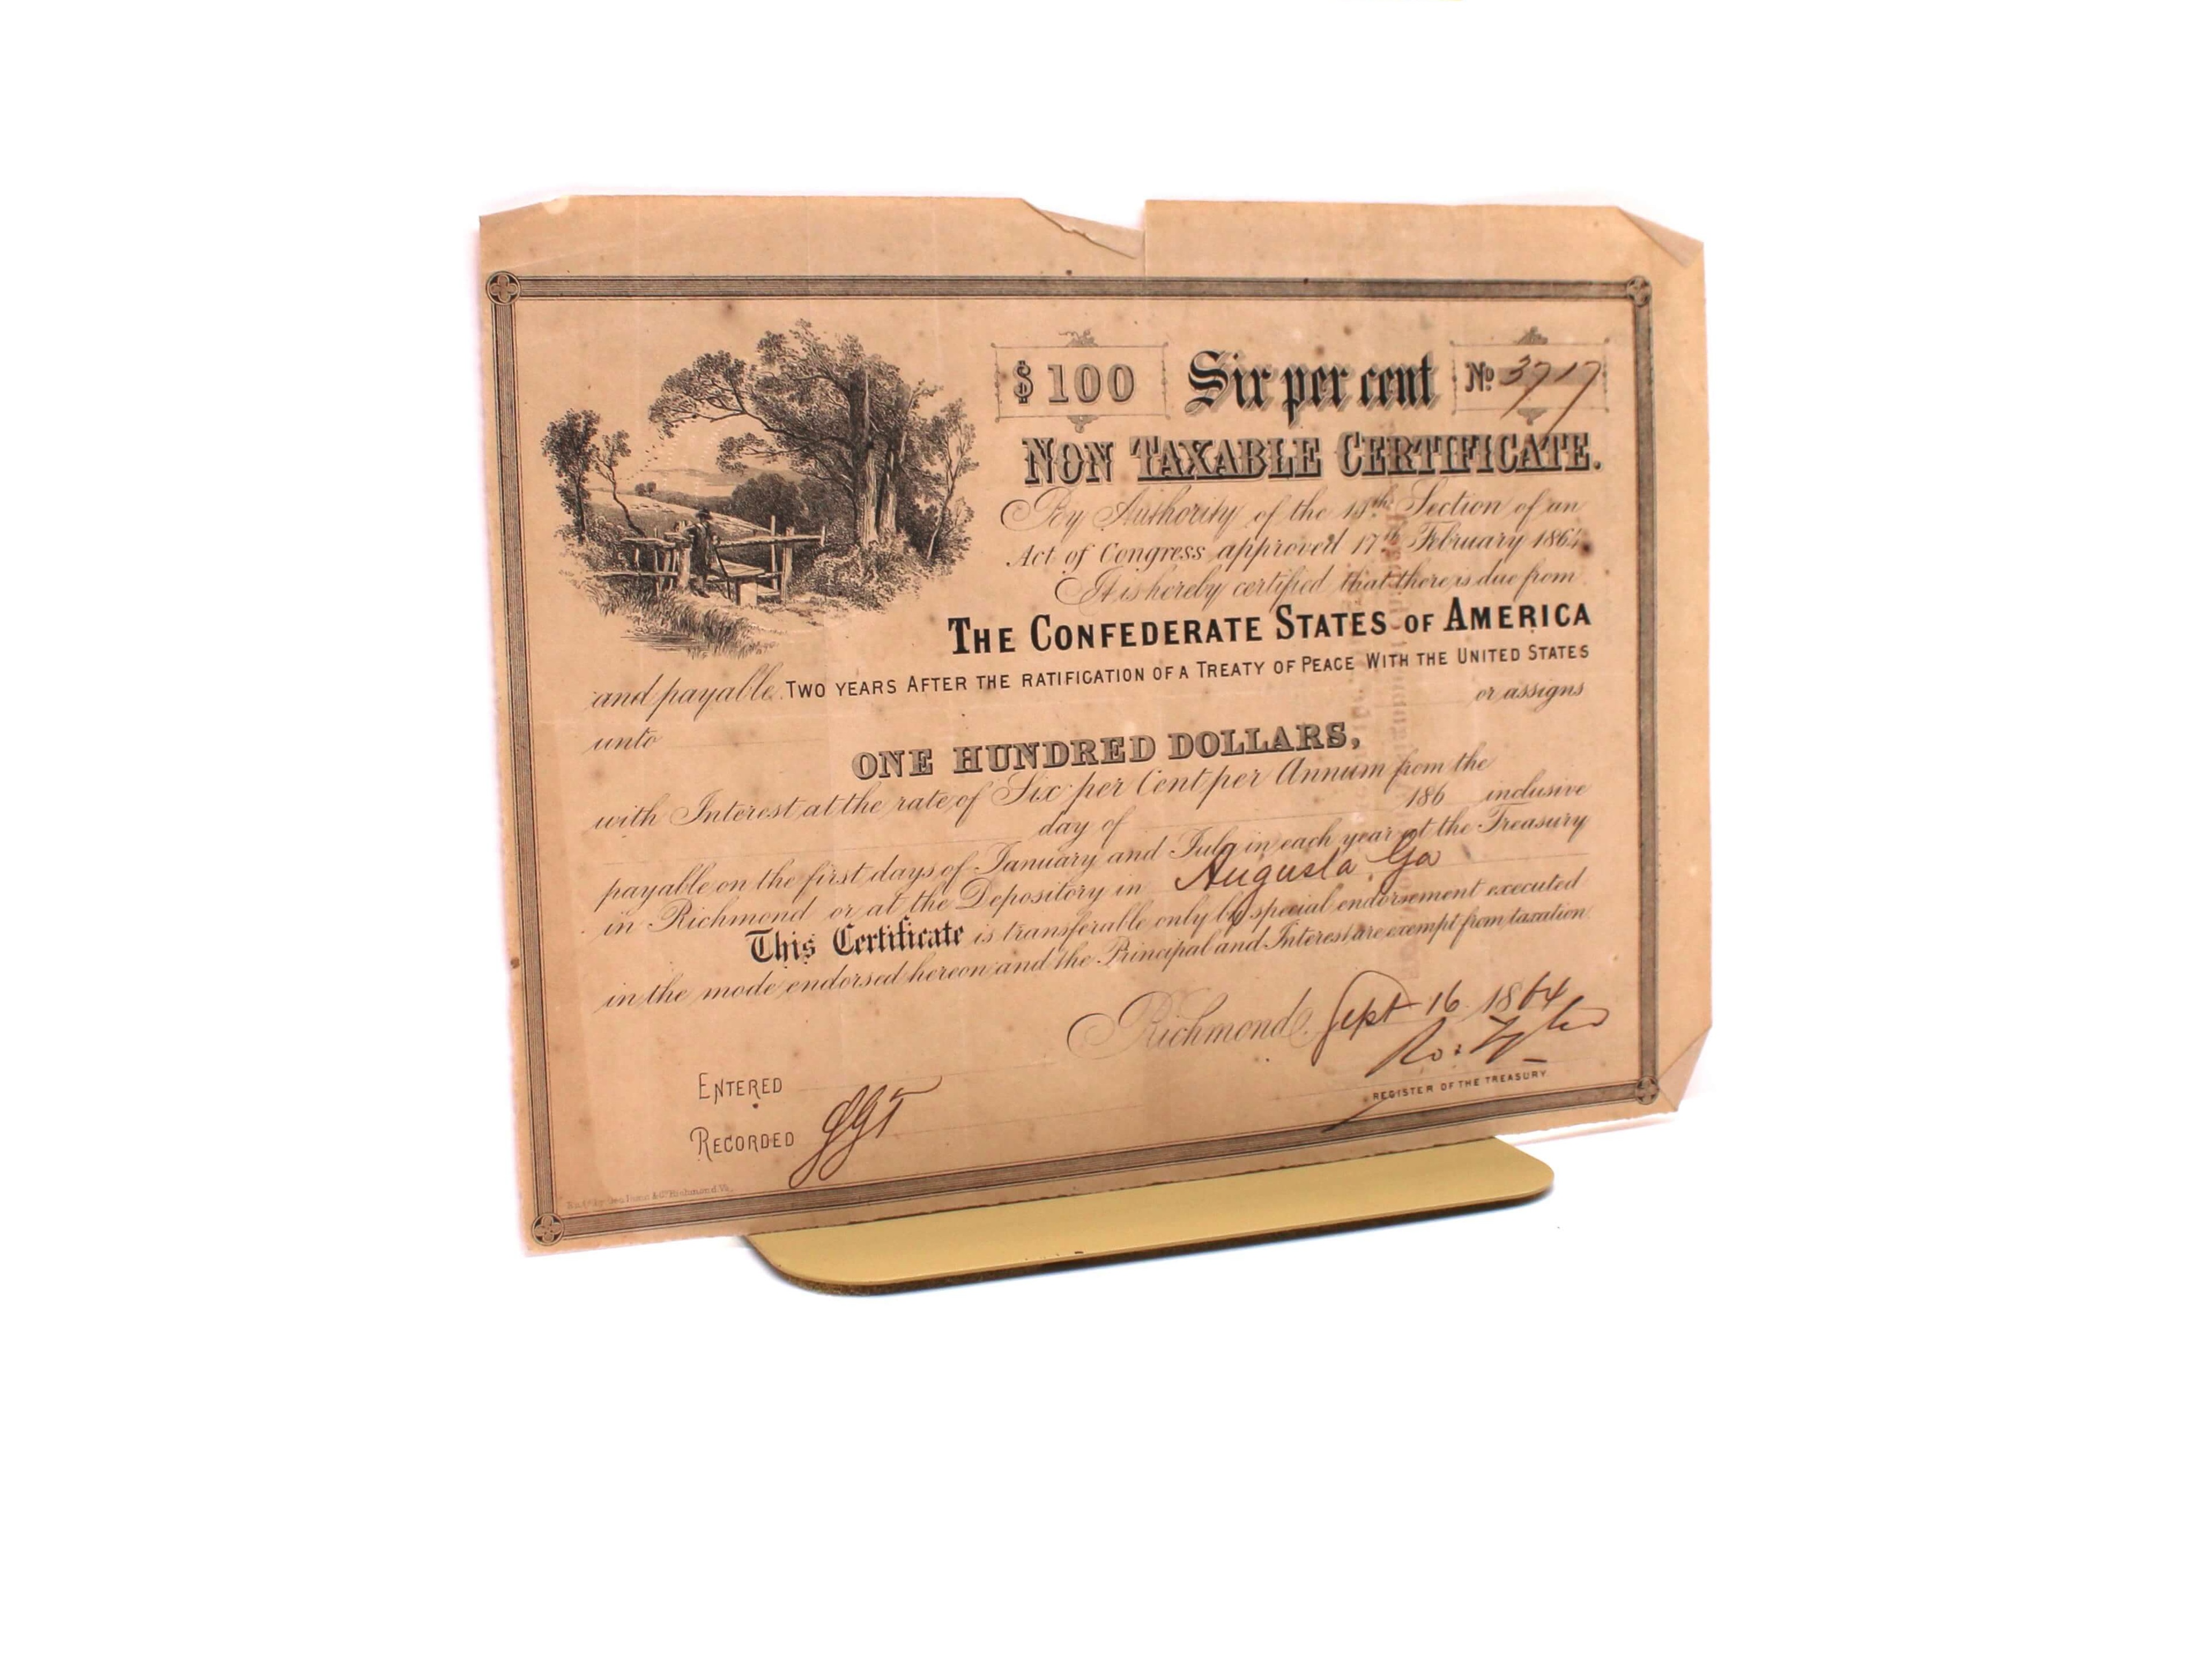 $100 Six per cent No 3717
NON TAXABLE CERTIFICATE.
By Authority of the 14th Section of an
Act of Congress approved 17th February 1864
It is hereby certified that there is due from
THE CONFEDERATE STATES OF AMERICA
and payable TWO YEARS AFTER THE RATIFICATION OF A TREATY OF PEACE WITH THE UNITED STATES
unto or assigns
ONE HUNDRED DOLLARS,
with Interest at the rate of Six per Cent per Annum from the
day of 186 inclusive
payable on the first days of January and July in each year at the Treasury
in Richmond or at the Depository in Augusta, Ga
This Certificate is transferable only by special endorsement executed
in the mode endorsed hereon and the Principal and Interest are exempt from taxation
Richmond Sept 16 1864
Ro: Tyler
REGISTER OF THE TREASURY.
ENTERED
RECORDED
Richmond Va.